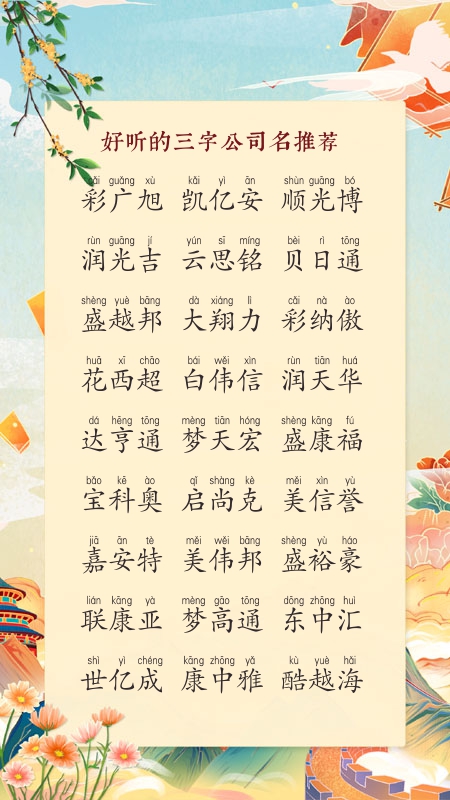 好听的三字公司名推荐
cǎi guǎng xù kǎi yì ān shùn guāng bó
彩广旭 凯亿安 顺光博
rùn guāng jí yún sī míng bèi rì tōng
润光吉 云思铭 贝日通
shèng yuè bāng dà xiáng lì cǎi nà ào
盛越邦 大翔力 彩纳傲
huā xī chāo bái wěi xìn rùn tiān huá
花西超 白伟信 润天华
dá hēng tōng mèng tiān hóng shèng kāng fú
达亨通 梦天宏 盛康福
bǎo kē ào qǐ shàng kè měi xìn yù
宝科奥 启尚克 美信誉
jiā ān tè měi wěi bāng shèng yù háo
嘉安特 美伟邦 盛裕豪
lián kāng yà mèng gāo tōng dōng zhōng huì
联康亚 梦高通 东中汇
shì yì chéng kāng zhōng yǎ kù yuè hǎi
世亿成 康中雅 酷越海